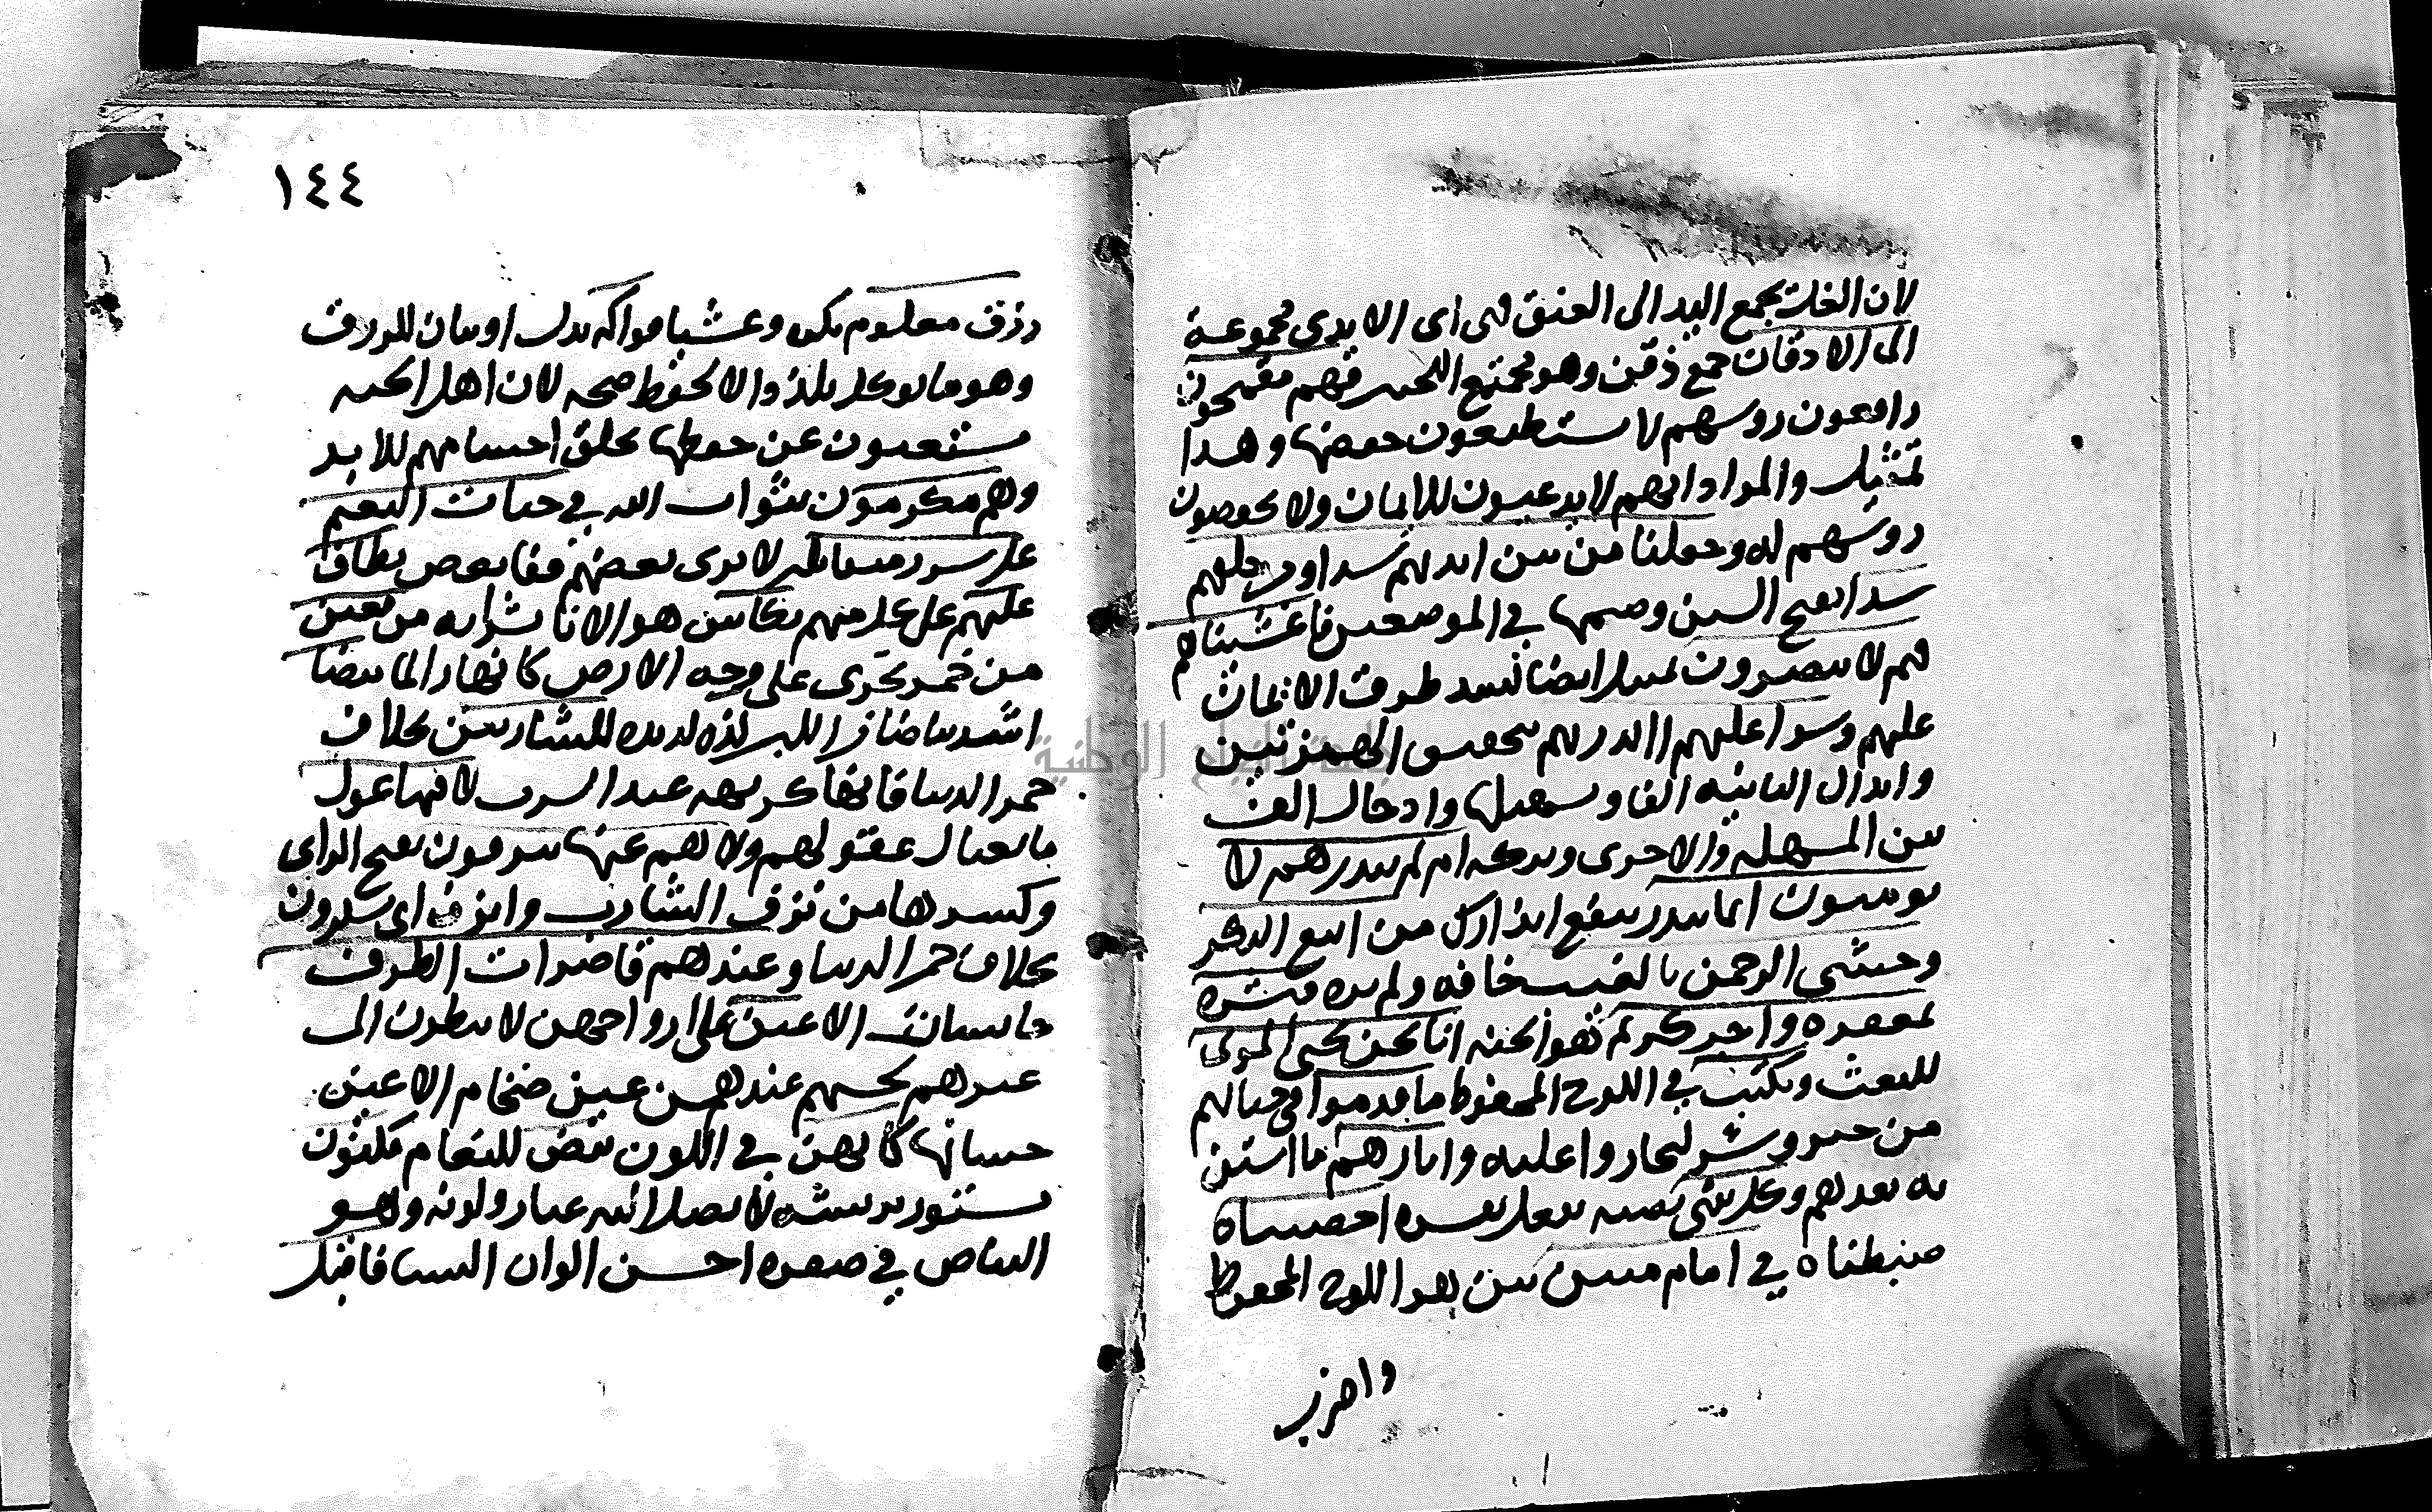 لان الغل يجمع اليد الى العنق فهى اى الايدى مجموعة
الى الاذقان جمع ذقن وهو مجتمع اللحيين فهم مقمحون
رافعون روسهم لا يستطيعون خفضها وهذا
تمثيل والمراد انهم لا يذعنون للايمان ولا يخفضون
روسهم له وجعلنا من بين ايديهم سدا ومن خلفهم
سدا بفتح السين وضمها في الموضعين فاغشيناهم
فهم لا يبصرون تمثيل ايضا لسد طرق الايمان
عليهم وسوا عليهم اانذرتهم بتحقيق الهمزتين
وابدال الثانيه الفا وتسهيلها وادخال الف
بين المسهلة والاخرى وتركه ام لم تنذرهم لا
يومنون انما تنذر ينفع انذارك من اتبع الذكر
وخشى الرحمن بالغيب خافه ولم يره فبشره
بمغفرة واجر كريم هو الجنه انا نحن نحيى الموتى
للبعث ونكتب في اللوح المحفوظ ما قدموا في حياتهم
من خير وشر ليجازوا عليه واثارهم ما استن
به بعدهم وكل شى نصبه بفعل يفسره احصيناه
ضبطناه في امام مبين بين هو اللوح المحفوظ
واضرب
١٤٤
رزق معلوم بكره وعشيا فواكه بدل او بيان للرزق
وهو ما يوكل تلذذا لا لحفظ صحه لان اهل الجنه
مستغنون عن حفظها بخلق اجسامهم للابد
وهم مكرمون بثواب الله في جنات النعيم
على سرر متقابلين لا يرى بعضهم قفا بعض يطاف
عليهم على كل منهم بكاس هو الانا بشرابه من معين
من خمر يجرى على وجه الارض كانهار الما بيضا
اشد بياضا من اللبن لذه لذيذه للشاربين بخلاف
خمر الدنيا فانها كريهه عند الشرب لا فيها غول
ما يغتال عقولهم ولا هم عنها ينزفون بفتح الزاى
وكسرها من نزف الشارب وانزف اى يسكرون
بخلاف خمر الدنيا وعندهم قاصرات الطرف
حابسات الاعين على ازواجهن لا ينظرن الى
غيرهم لحسنهم عندهن عين ضخام الاعين
حسانها كانهن في اللون بيض للنعام مكنون
مستور بريشه لا يصل اليه غبار ولونه وهو
البياض في صفره احسن الوان النسا فاقبل